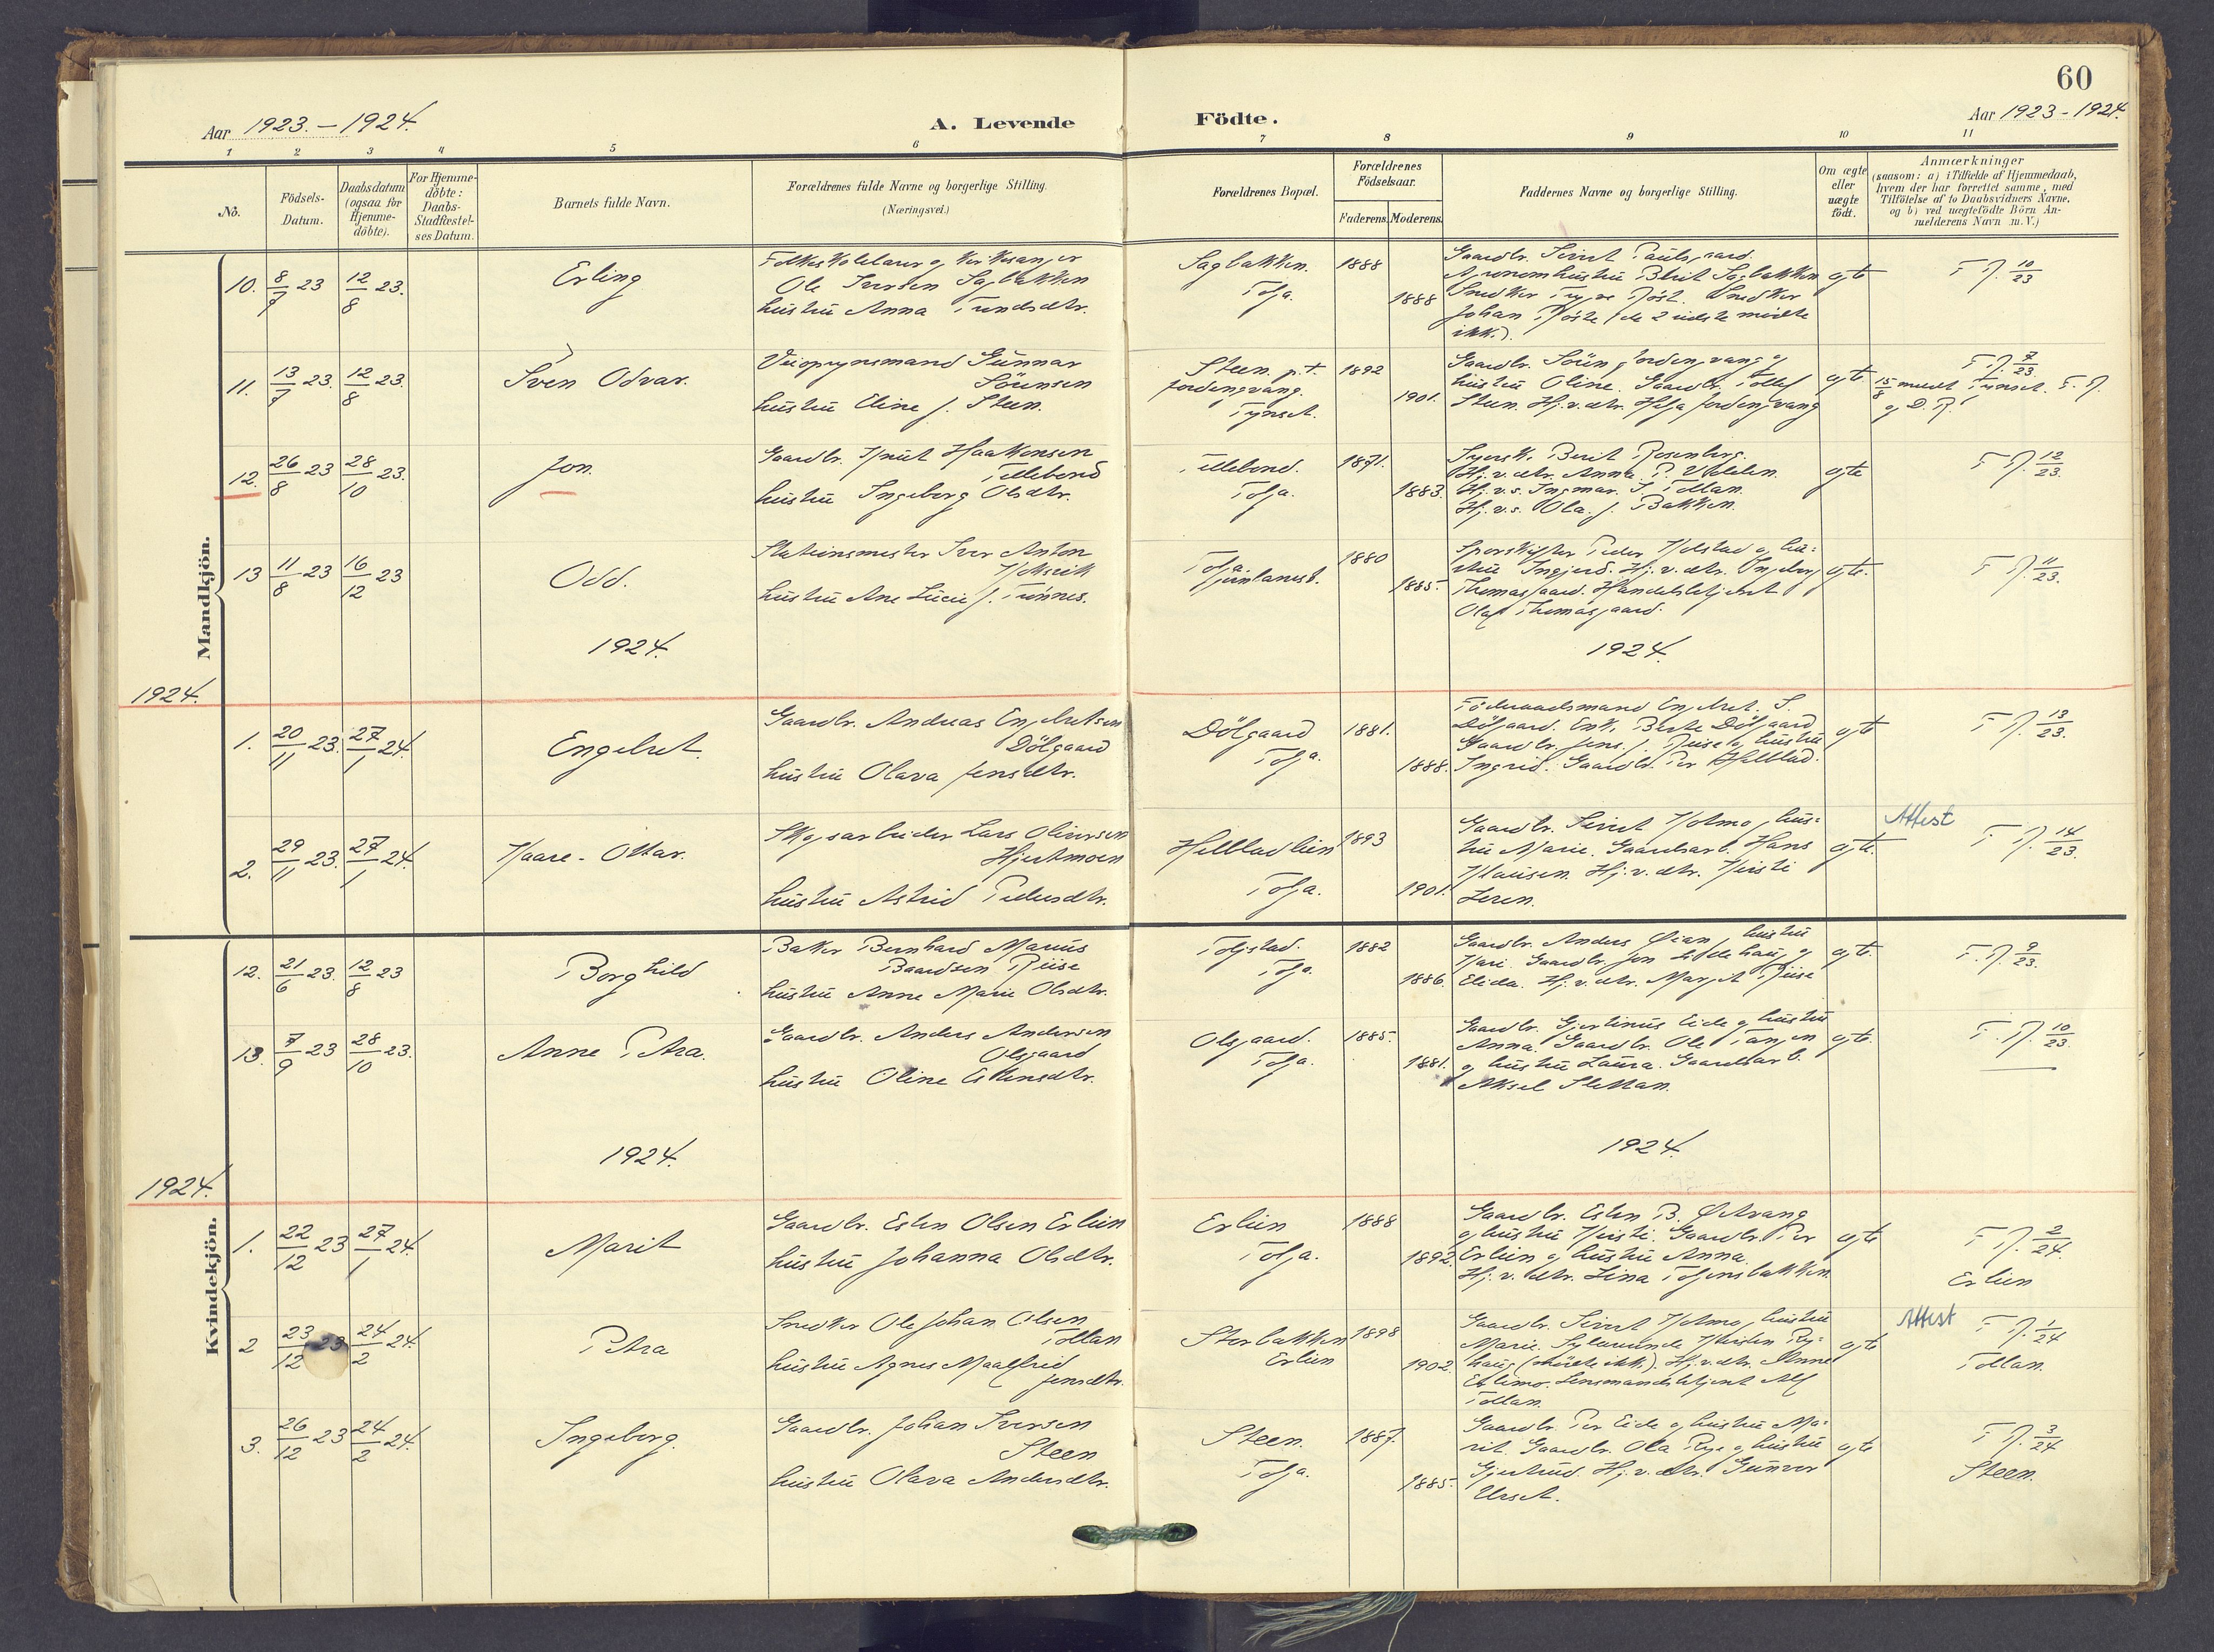 60
Aar 1923. - 1924.
A. Levende
Födte.
Aar 1923 - 1924.
1 2 3 4 5 6 7 8 9 10 11
No.
Födsels-
Datum.
Daabsdatum
(ogsaa for
Hjemme-
döbte).
For Hjemme-
döbte:
Daabs-
Stadfæstel-
ses Datum.
Barnets fulde Navn.
Forældrenes fulde Navne og borgerlige Stilling.
(Næringsvei.)
Forældrenes Bopæl.
Forældrenes
Födselsaar.
Faderens. Moderens.
Faddernes Navne og borgerlige Stilling.
Om ægte
eller
uægte
födt.
Anmærkninger
(saasom: a) i Tilfælde af Hjemmedaab,
hvem der har forrettet samme, med
Tilföielse af to Daabsvidners Navne,
og b) ved uægtefödte Börn An-
melderens Navn m. V.)
Mandkjön.
10. 8/7 23 12/8 23.
Erling
Ole Iversen Sagbakken
hustru Anna Trondsdtr.
Sagbakken.
Tolga.
1888
1888
Gaardbr. Sivert Paulsgaard.
Agronomhustru Berit Sagbakken
Snedker Trygve Röst. Snedker
Johan Röste (de 2 sidste mödte
ikke).
egte
F. R. 10/23
11. 13/7 23. 12/8 23.
Sven Odvar.
Veiopsynsmand Gunnar
Sörensen
hustru Eline J. Steen.
Steen p.t.
Jordengvang.
Tynset.
1892
1901.
Gaardbr. Sören Jordengvang og
hustru Oline. Gaardbr. Tollef
Steen. Hj.v.dtr. Helga Jordengvang
egte.
F R. 7/23
15/8 meldt Tynset. F. R.
og D. R.
12. 26/8 23 28/10 23.
Jon.
Gaardbr. Knut Haakensen
Tillebond
hustru Ingeborg Olsdtr.
Tillebond.
Tolga.
1871.
1883.
Sypersk. Berit Rosenberg.
Hj.v.dtr. Anna P.
Hj.v.s. Ingmar. S. Tollan.
Hj.v.s. Ola. J. Bakken.
egte
F R. 12/23.
13 11/8 23 16/12 23
Odd.
Stationsmester Iver Anton
hustru Ane Lucie J. Tönnes.
Tolga
jernbanest.
1880
1885.
Sporskifter Peder Kolstad og hu-
stru Ingjerd. Hj.v.dtr. Ingeborg
Thomasgaard. Handelsbetjent
Olaf Thomasgaard.
egte.
F R. 11/23.
1924.
1924.
1924.
1. 20/11 23. 27/1 24.
Engebret.
Gaardbr. Andreas Engebretsen
Dölgaard
hustru Olava Jensdtr.
Dölgaard
Tolga.
1881.
1888.
Föderaadsmand Engebret. S.
Dölgaard. Enk. Berte Dölgaard
Gaardbr. Jens. J. Riise og hustru
Ingrid. Gaardbr. Per Helblad.
egte
F R. 13/23.
2. 29/11 23. 27/1 24.
Kaare - Ottar.
Skogsarbeider Lars Oliversen
Hjertmoen
hustru Astrid Pedersdtr.
Helbladlien
Tolga.
1893
1901.
Gaardbr. Sivert Holmo, hus-
tru Marie. Gaardsarb. Hans
Klausen. Hj.v.dtr. Kirsti
egte.
Attest
F R. 14/23.
Kvindekjön.
12. 21/6 23. 12/8 23
Borghild
Baker Bernhard Marius
Baardsen Riise
hustru Anne Marie Olsdtr.
Tolgstad.
Tolga.
1882
1886.
Gaardbr. Anders Öian, hustru
Kari. Gaardbr. Jon
Elida. Hj.v.dtr. Margit Riise
egte.
F. R. 9/23.
13. 7/9 23 28/10 23.
Anne Petra.
Gaardbr. Anders Andersen
Olsgaard
hustru Oline Estensdtr.
Olsgaard.
Tolga.
1885.
1881.
Gaardbr. Gjertinus Eide og hustru
Anna. Gaardbr. Ole Tangen
og hustru Laura. Gaardsarb.
Aksel Slettan.
egte.
F. R. 10/23.
1924.
1924.
1924.
1. 22/12 23 27/1 24.
Marit
Gaardbr. Esten Olsen Erlien
hustru Johanna Olsdtr.
Erlien
Tolga.
1888
1892.
Gaardbr. Esten B. Östvang
og hustru Kirsti. Gaardbr. Per
Erlien og hustru Anna.
Hj.v.dtr. Lina Tolgensbakken.
egte
F R. 2/24.
Erlien
2 23/12 23 24/2 24.
Petra
Snedker Ole Johan Olsen
Tollan
hustru Agnes Maalfrid
Jensdtr.
Storbakken
Erlien
1898
1902.
Gaardbr. Sivert Holmo, hustru
Marie. Sykunde Kirsten Ry-
haug (mödte ikke). Hj.v.dtr. Anne
Eblemo. Lensmandsbetjent Alf
Tollan.
egte
Attest
F R. 1/24
Tollan.
3. 26/12 23 24/2 24.
Ingeborg.
Gaardbr. Johan Iversen
Steen
hustru Olava Andersdtr.
Steen.
Tolga.
1887.
1885.
Gaardbr. Per Eide og hustru Ma-
rit. Gaardbr. Ola Rye og hustru
Gjertrud. Hj.v.dtr. Gunvor
Urset.
egte
F R. 3/24
Steen.